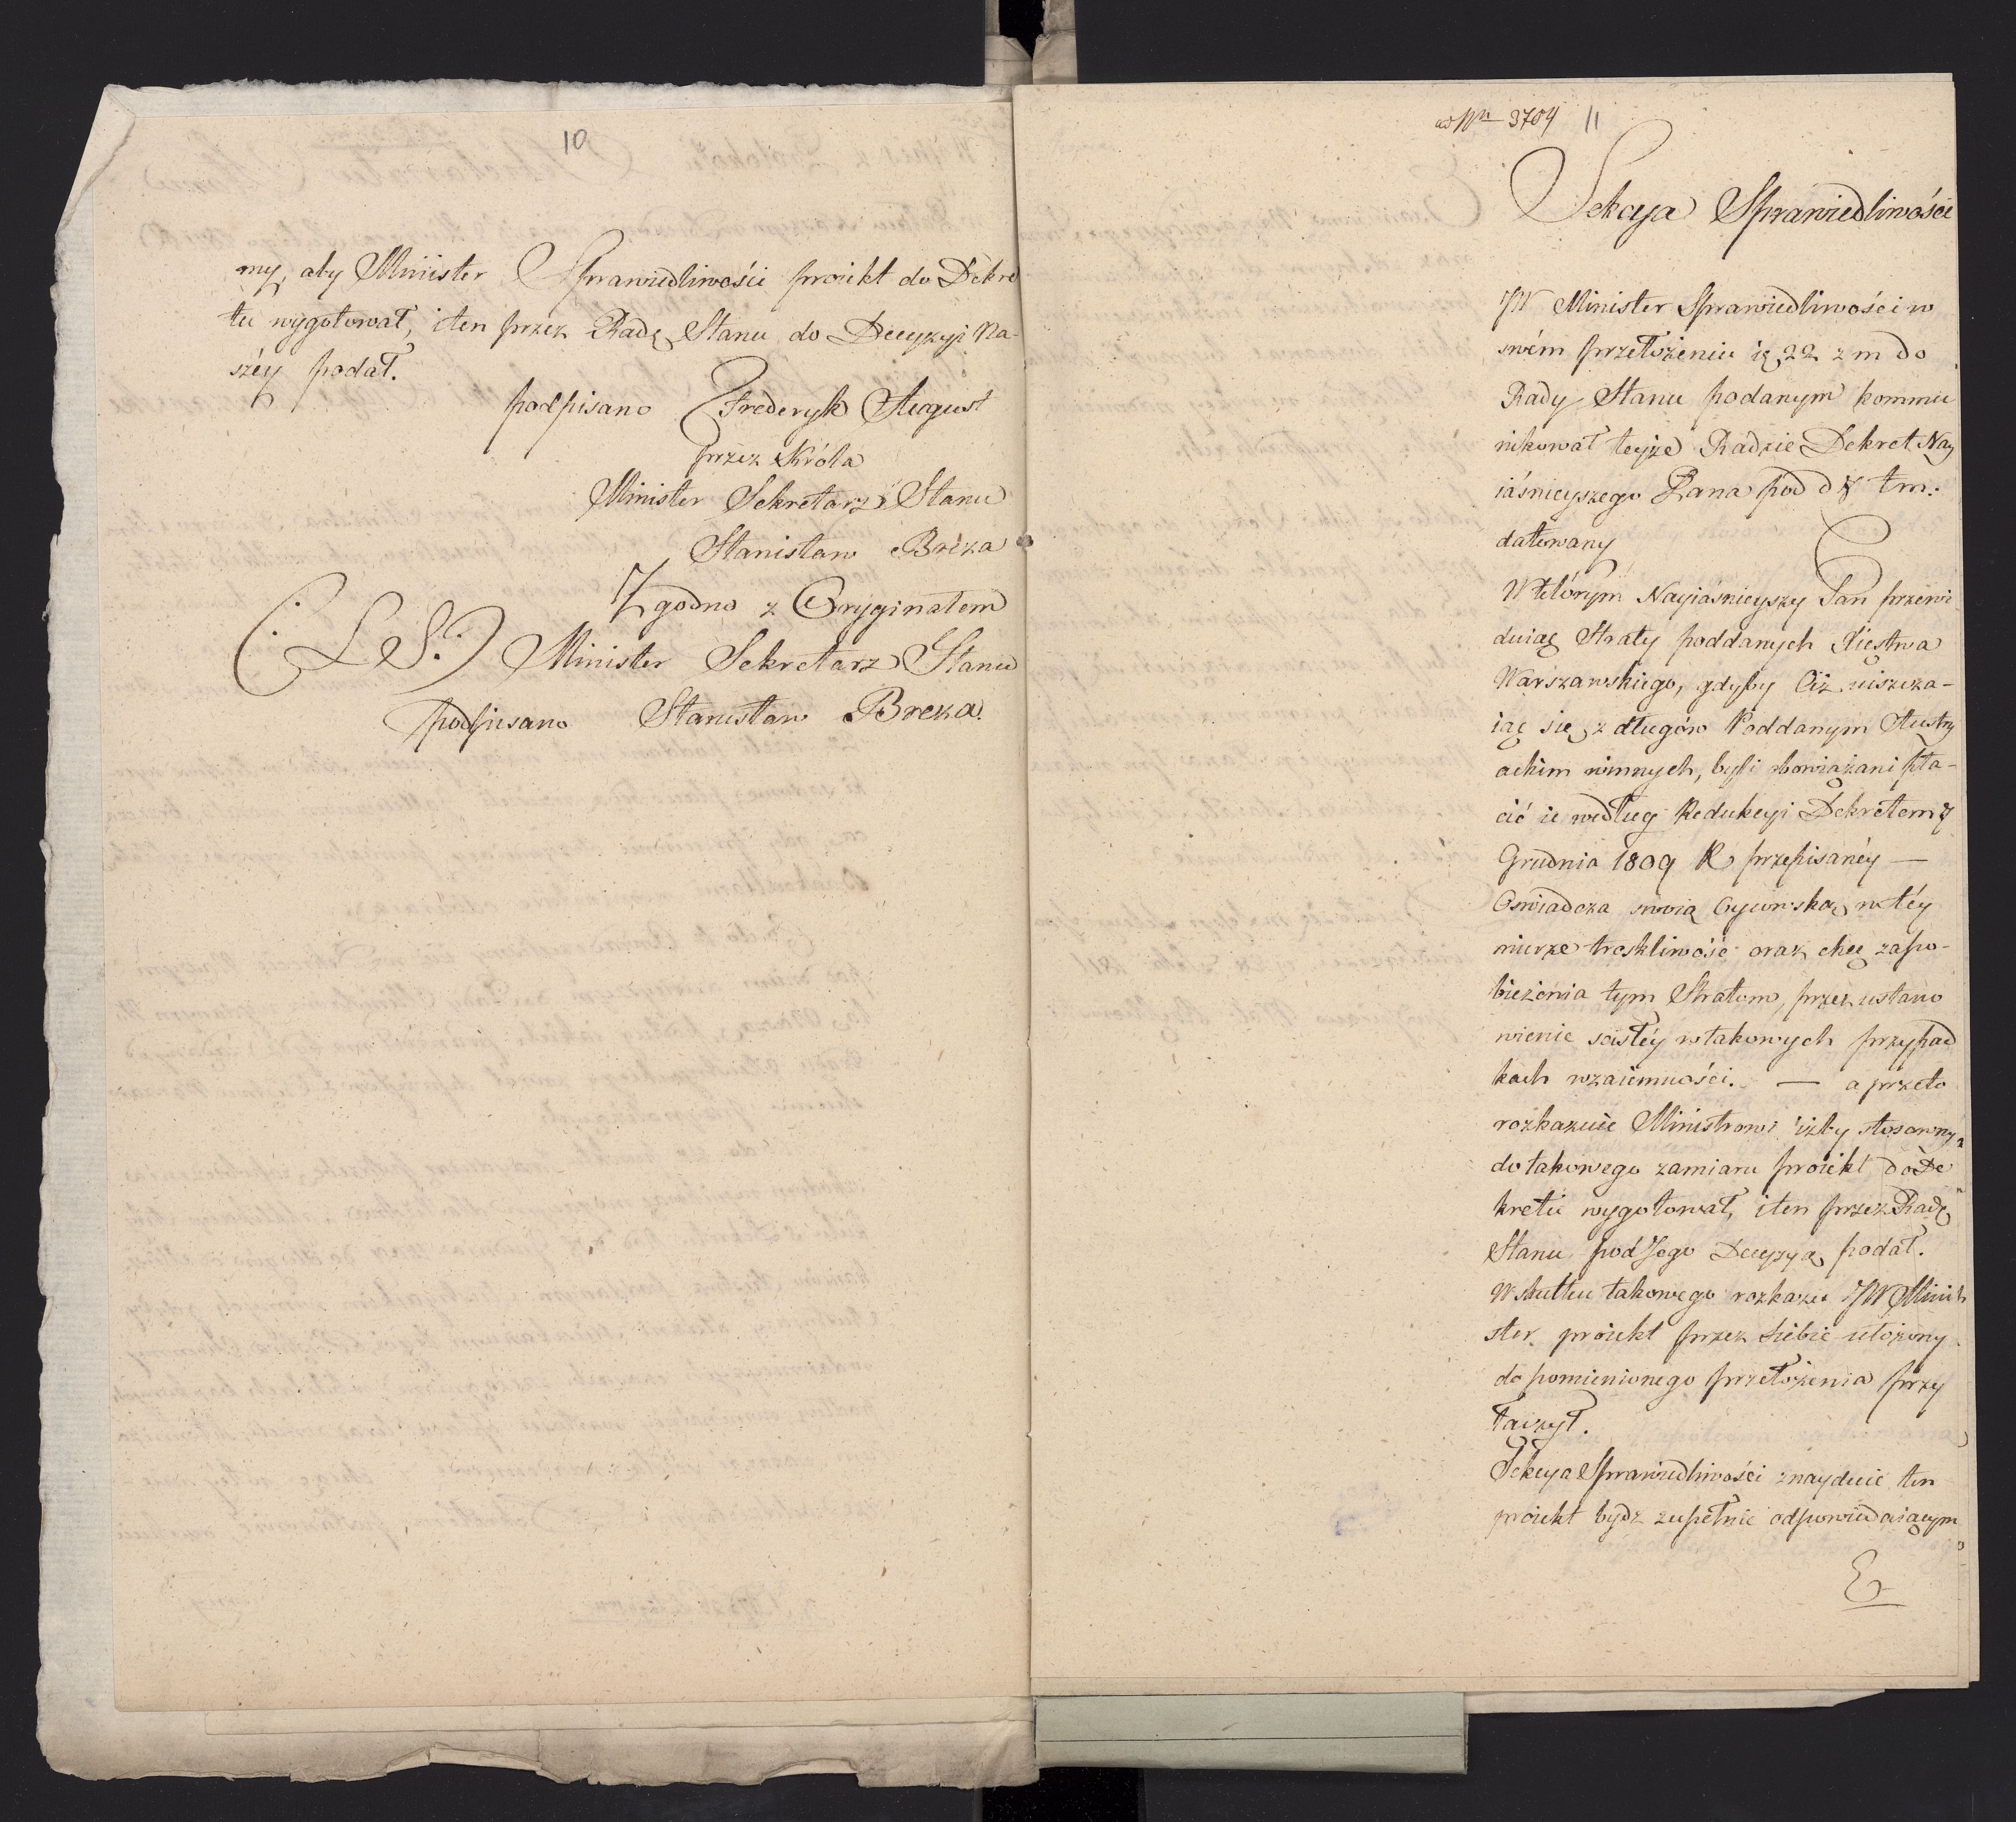 10
my, aby Minister Sprawiedliwości proiekt do Dekre
tu wygotował, i ten przez Radę Stanu do Decyzyi Na-
széy podał.
podpisano Frederyk August
przez Króla
Minister Sekretarz Stanu
Stanisław Breza
Zgodno z Oryginałem
(: L S :) Minister Sekretarz Stanu
podpisano Stanisław Breza.
ad Nr 3704 11
Sekcya Sprawiedliwości
JW Minister Sprawiedliwości w
swém przełożeniu 22 z m do
Rady Stanu podanym kommu
nikował teyże Radzie Dekret Nay
iaśnieyszego Pana pod d 7 t m:
datowany
W którym Nayiaśnieyszy Pan przewi
duiąc Straty poddanych Xięstwa
Warszawskiego, gdyby Ciż uiszcza-
iąc się z długów Poddanym Austry
ackim winnych, byli obowiązani pła-
cić ie według Redukcyi Dekretem 7
Grudnia 1809 R przepisanéy —
Oswiadcza swoią Oycowską w téy
mierze troskliwość oraz chęć zapo-
bieżenia tym Stratom, przez ustano
wienie scisłéy w takowych przypad
kach wzaiemności. — a przeto
rozkazuie Ministrowi iżby stosowny
do takowego zamiaru proiekt do De
kretu wygotował, i ten przez Radę
Stanu pod Jego Decyzyą podał.
W skutku takowego rozkazu JW Mini
ster proiekt przez siebie ułożony
do pomienionego przełożenia przy
łączył.
Sekcya Sprawiedliwości znayduie ten
proiekt bydz zupełnie odpowiedaiącym